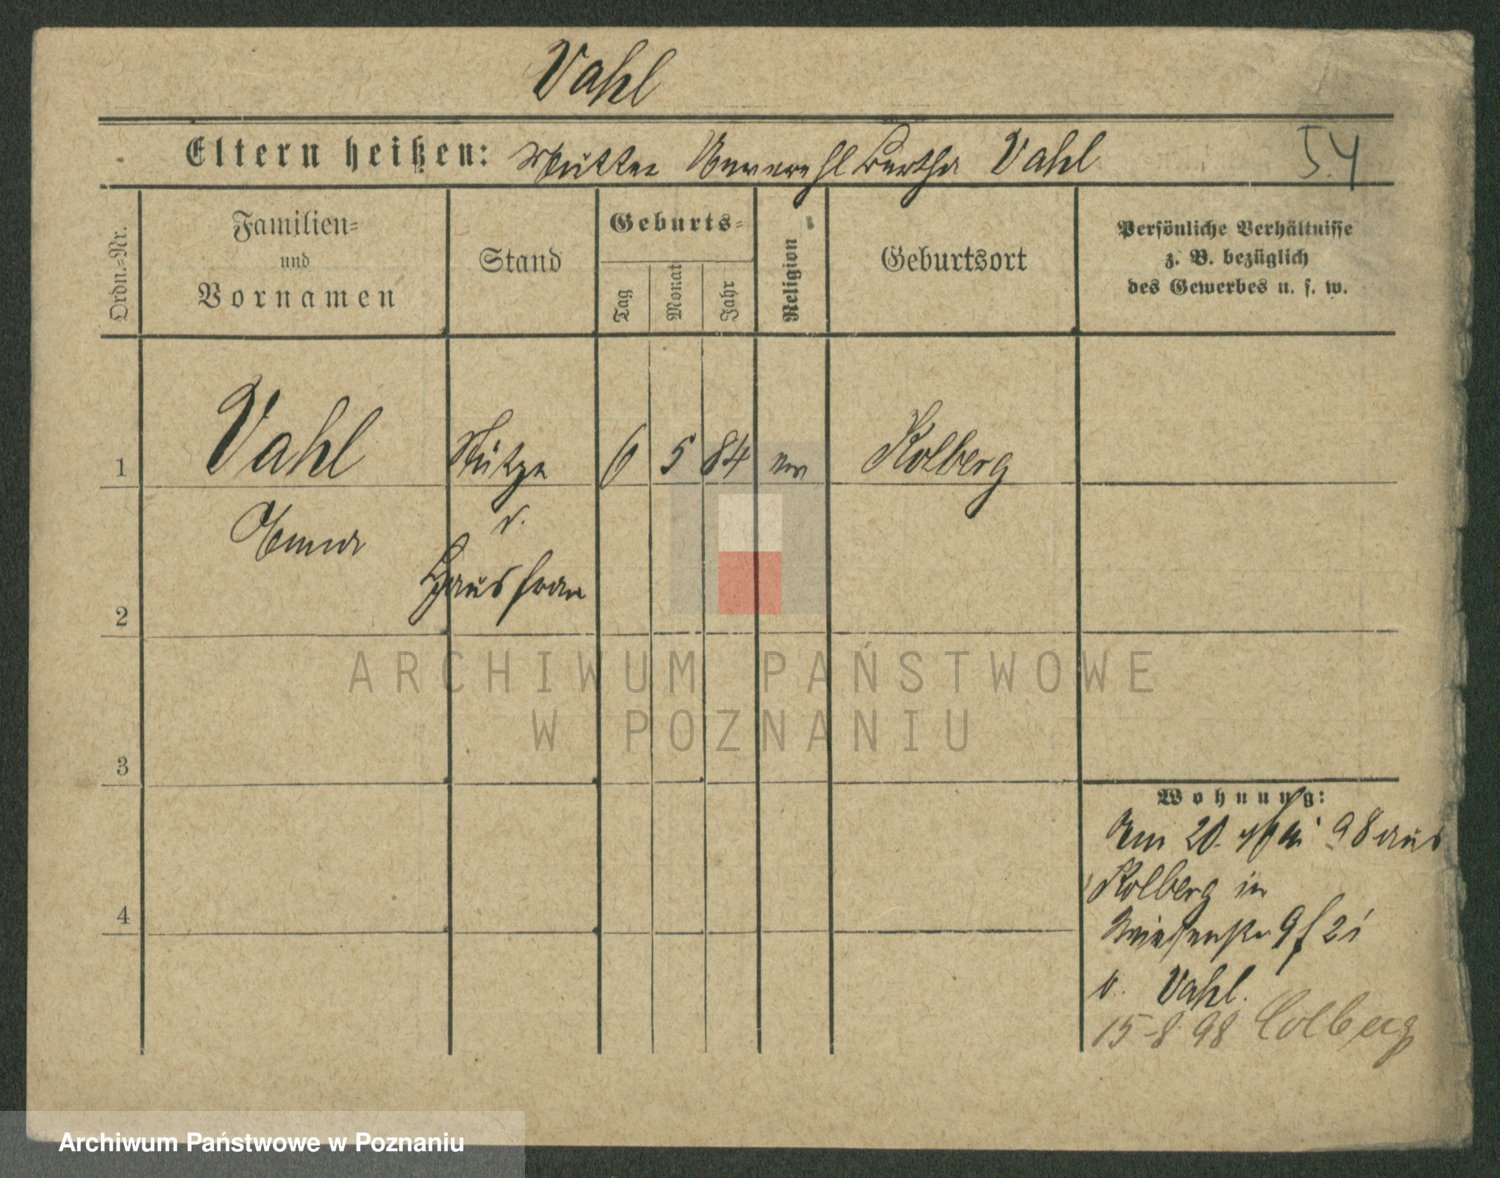 Vahl
Eltern heißen: Mutter Bertha Vahl
54
Ordn.-Nr.
Familien-
und
Vornamen
Stand
Geburts-
Tag
Monat
Jahr
Religion
Geburtsort
Persönliche Verhältnisse
z. B. bezüglich
des Gewerbes u. s. w.
1 Vahl Stütze 6 5 84 ev Kolberg
Emma d.
2 Hausfrau
ARCHIWUM PAŃSTWOWE
W POZNANIU
3
Wohnung:
Am 20. Mai 98 aus
Kolberg in
4
Wiesenstr 9
b. Vahl.
15-8 98 Colberg
Archiwum Państwowe w Poznaniu